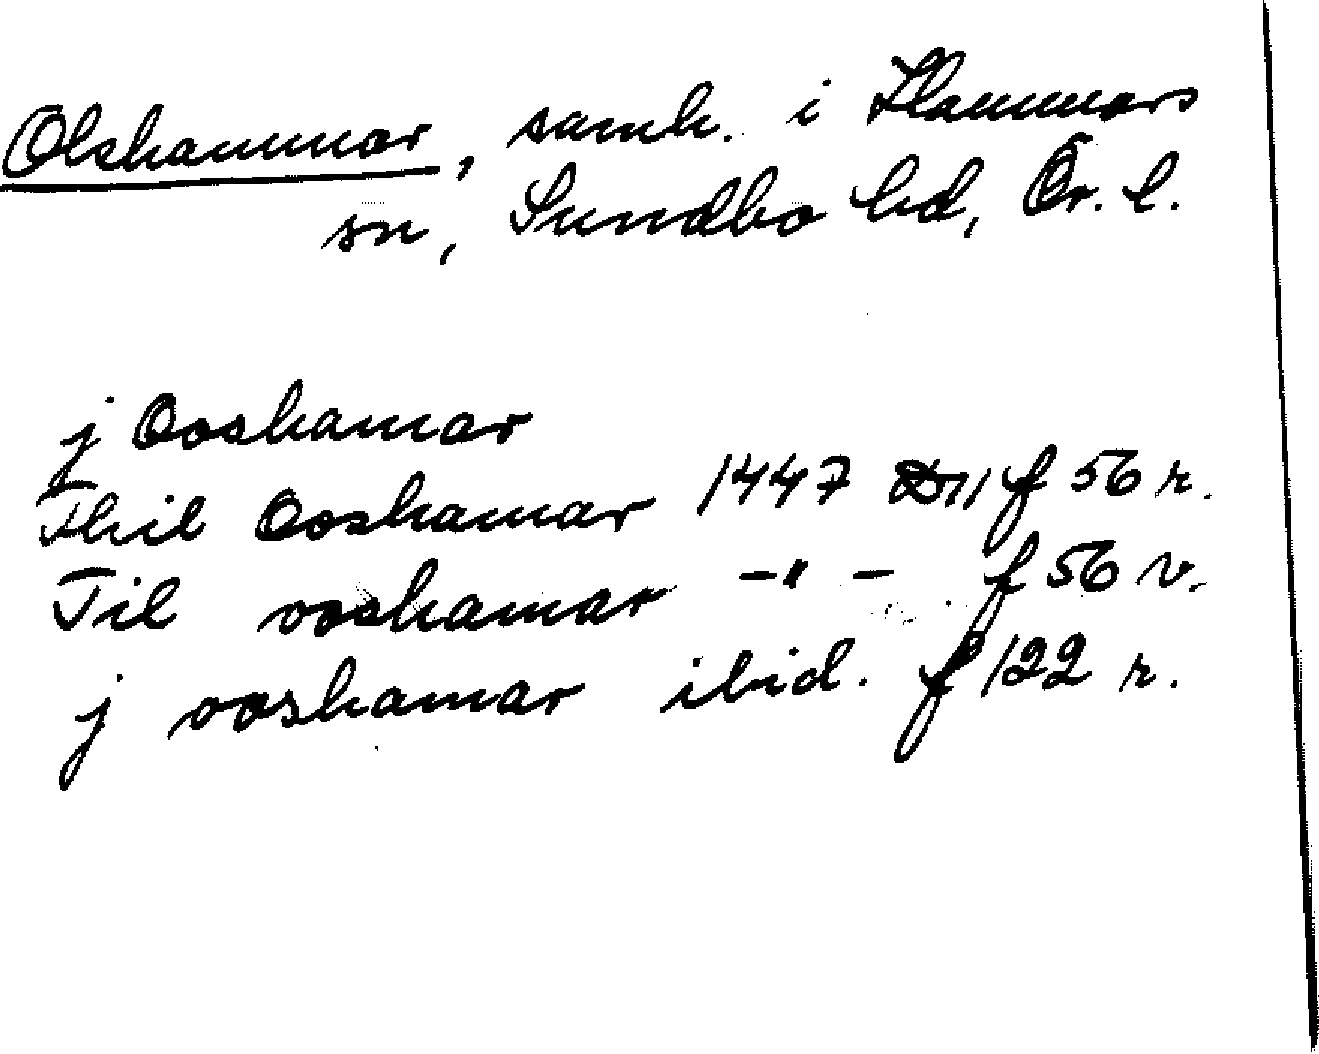 Olshammar, samh. i Hammars
sn, Sundbo hd, Ör. l.
j Ooshamar
Thil Ooshamar 1447 D11 f 56 r.
Til voshamar -"- f 56 v.
j vooshamar ibid. f 122 r.